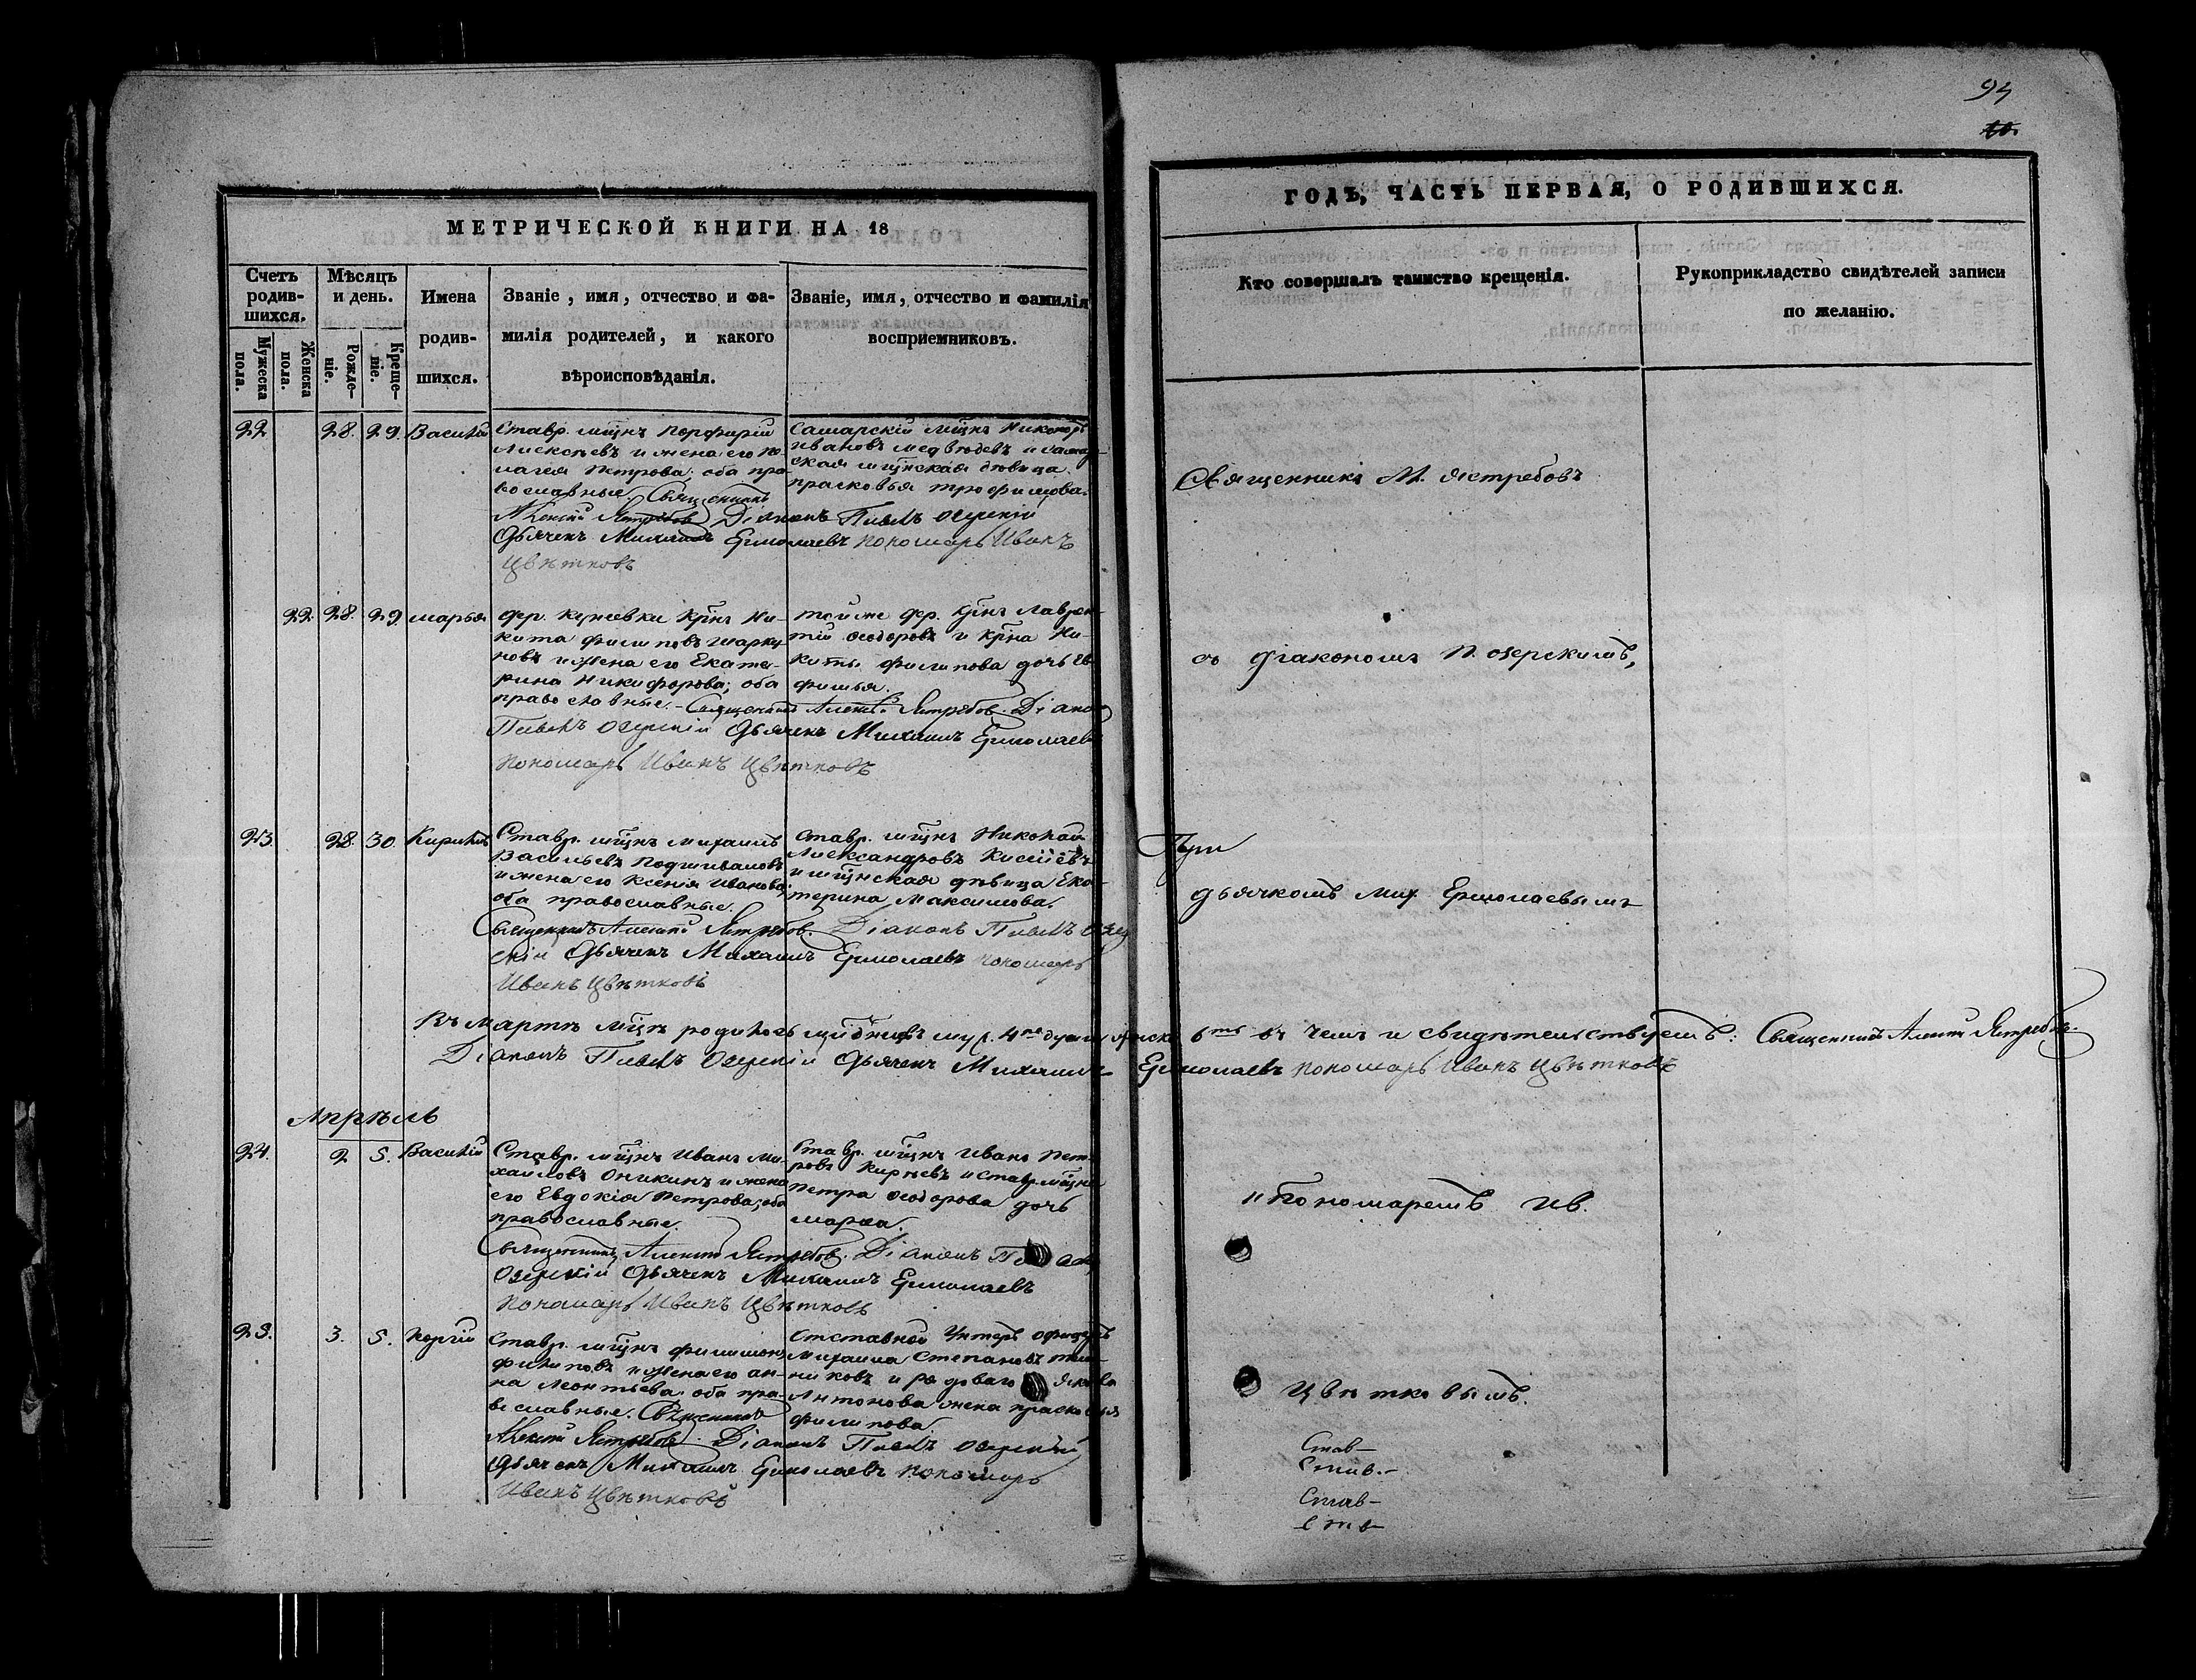 94
10.
МЕТРИЧЕСКОЙ КНИГИ НА 18
ГОДЪ, ЧАСТЬ ПЕРВАЯ, О РОДИВШИХСЯ.
Счетъ родив-шихся.
Мужеска пола.
Женска пола.
Мѣсяцъ и день.
Рожде-ніе.
Креще-ніе.
Имена
родив-
шихся.
Званіе, имя, отчество и фа-
милія родителей, и какого
вѣроисповѣданія.
Званіе, имя, отчество и фамилія
восприемниковъ.
Кто совершалъ таинство крещенія.
Рукоприкладство свидѣтелей записи
по желанію.
22 28. 29. Василій
Ставр. мщнъ Порфирій
Алексѣевъ и жена его Пе-
лагея Петрова; оба пра-
вославные. Священникъ
Алексій Ястребовъ Діаконъ Павелъ Озерскій
Дьячекъ Михаилъ Ермолаевъ Пономарь Иванъ
Цвѣтковъ
Самарскій мщнъ Никоноръ
Ивановъ Медвѣдевъ и самар-
ская мщнская дѣвица
Прасковья Трофимова.
Священникъ А. Ястребовъ
22. 28. 29. Марья
дер. Кунеевки Крнъ Ни-
кита Филиповъ
новъ и жена его Екате-
рина Никифорова; оба
православные. - Священникъ Алексій Ястребов. Діаконъ
Павелъ Озерскій Дьячекъ Михаилъ Ермолаевъ
Пономарь Иванъ Цвѣтковъ
той же дер. Крнъ Лаврен-
тій Феодоровъ и Крна Ни-
киты Филипова дочь Ев-
фимья.
съ Діакономъ П. Озерскимъ,
23. 28. 30. Кирилъ
Ставр. мщнъ Михаилъ
Васильевъ Подшиваловъ
и жена его Ксенія Иванова
оба православные.
Священникъ Алексій Ястребов. Діаконъ Павелъ Озер
скій Дьячекъ Михаилъ Ермолаевъ Пономарь
Иванъ Цвѣтковъ
Ставр. мщнъ Николай
Александровъ
и мщнская дѣвица Ека-
терина Максимова.
При
дьячкомъ Мих. Ермолаевымъ
Въ Мартѣ мцѣ родилось
въ чемъ и свидѣтельствуемъ: Священникъ Алексій Ястребовъ.
Діаконъ Павелъ Озерскій Дьячекъ Михаилъ Ермолаевъ Пономарь Иванъ Цвѣтковъ
Апрѣль
24. 2 5. Василій
Ставр. мщнъ Иванъ Ми-
хайловъ Оникинъ и жена
его Евдокія Петрова; оба
православные.
Священникъ Алексій Ястребов. Діаконъ
Озерскій Дьячекъ Михаилъ Ермолаевъ
Пономарь Иванъ Цвѣтковъ
Ставр. мщнъ Иванъ Пет-
ровъ Кирѣевъ и Ставр. мщна
Петра Феодорова дочь
Марѳа.
и Пономаремъ Ив.
25. 3. 5. Георгій
Ставр. мщнъ Филимонъ
Филиповъ и жена его Ан-
на Леонтьева оба пра-
вославные. Священникъ
Алексій Ястребов. Діаконъ Павелъ Озерскій
Дьячекъ Михаилъ Ермолаевъ Пономарь
Иванъ Цвѣтковъ
Отставной Унтеръ офицеръ
Михаила Степановъ
никовъ и рядоваго
Антонова жена Прасковья
Филипова.
Цвѣтковымъ.
Став-
Став.-
Став-